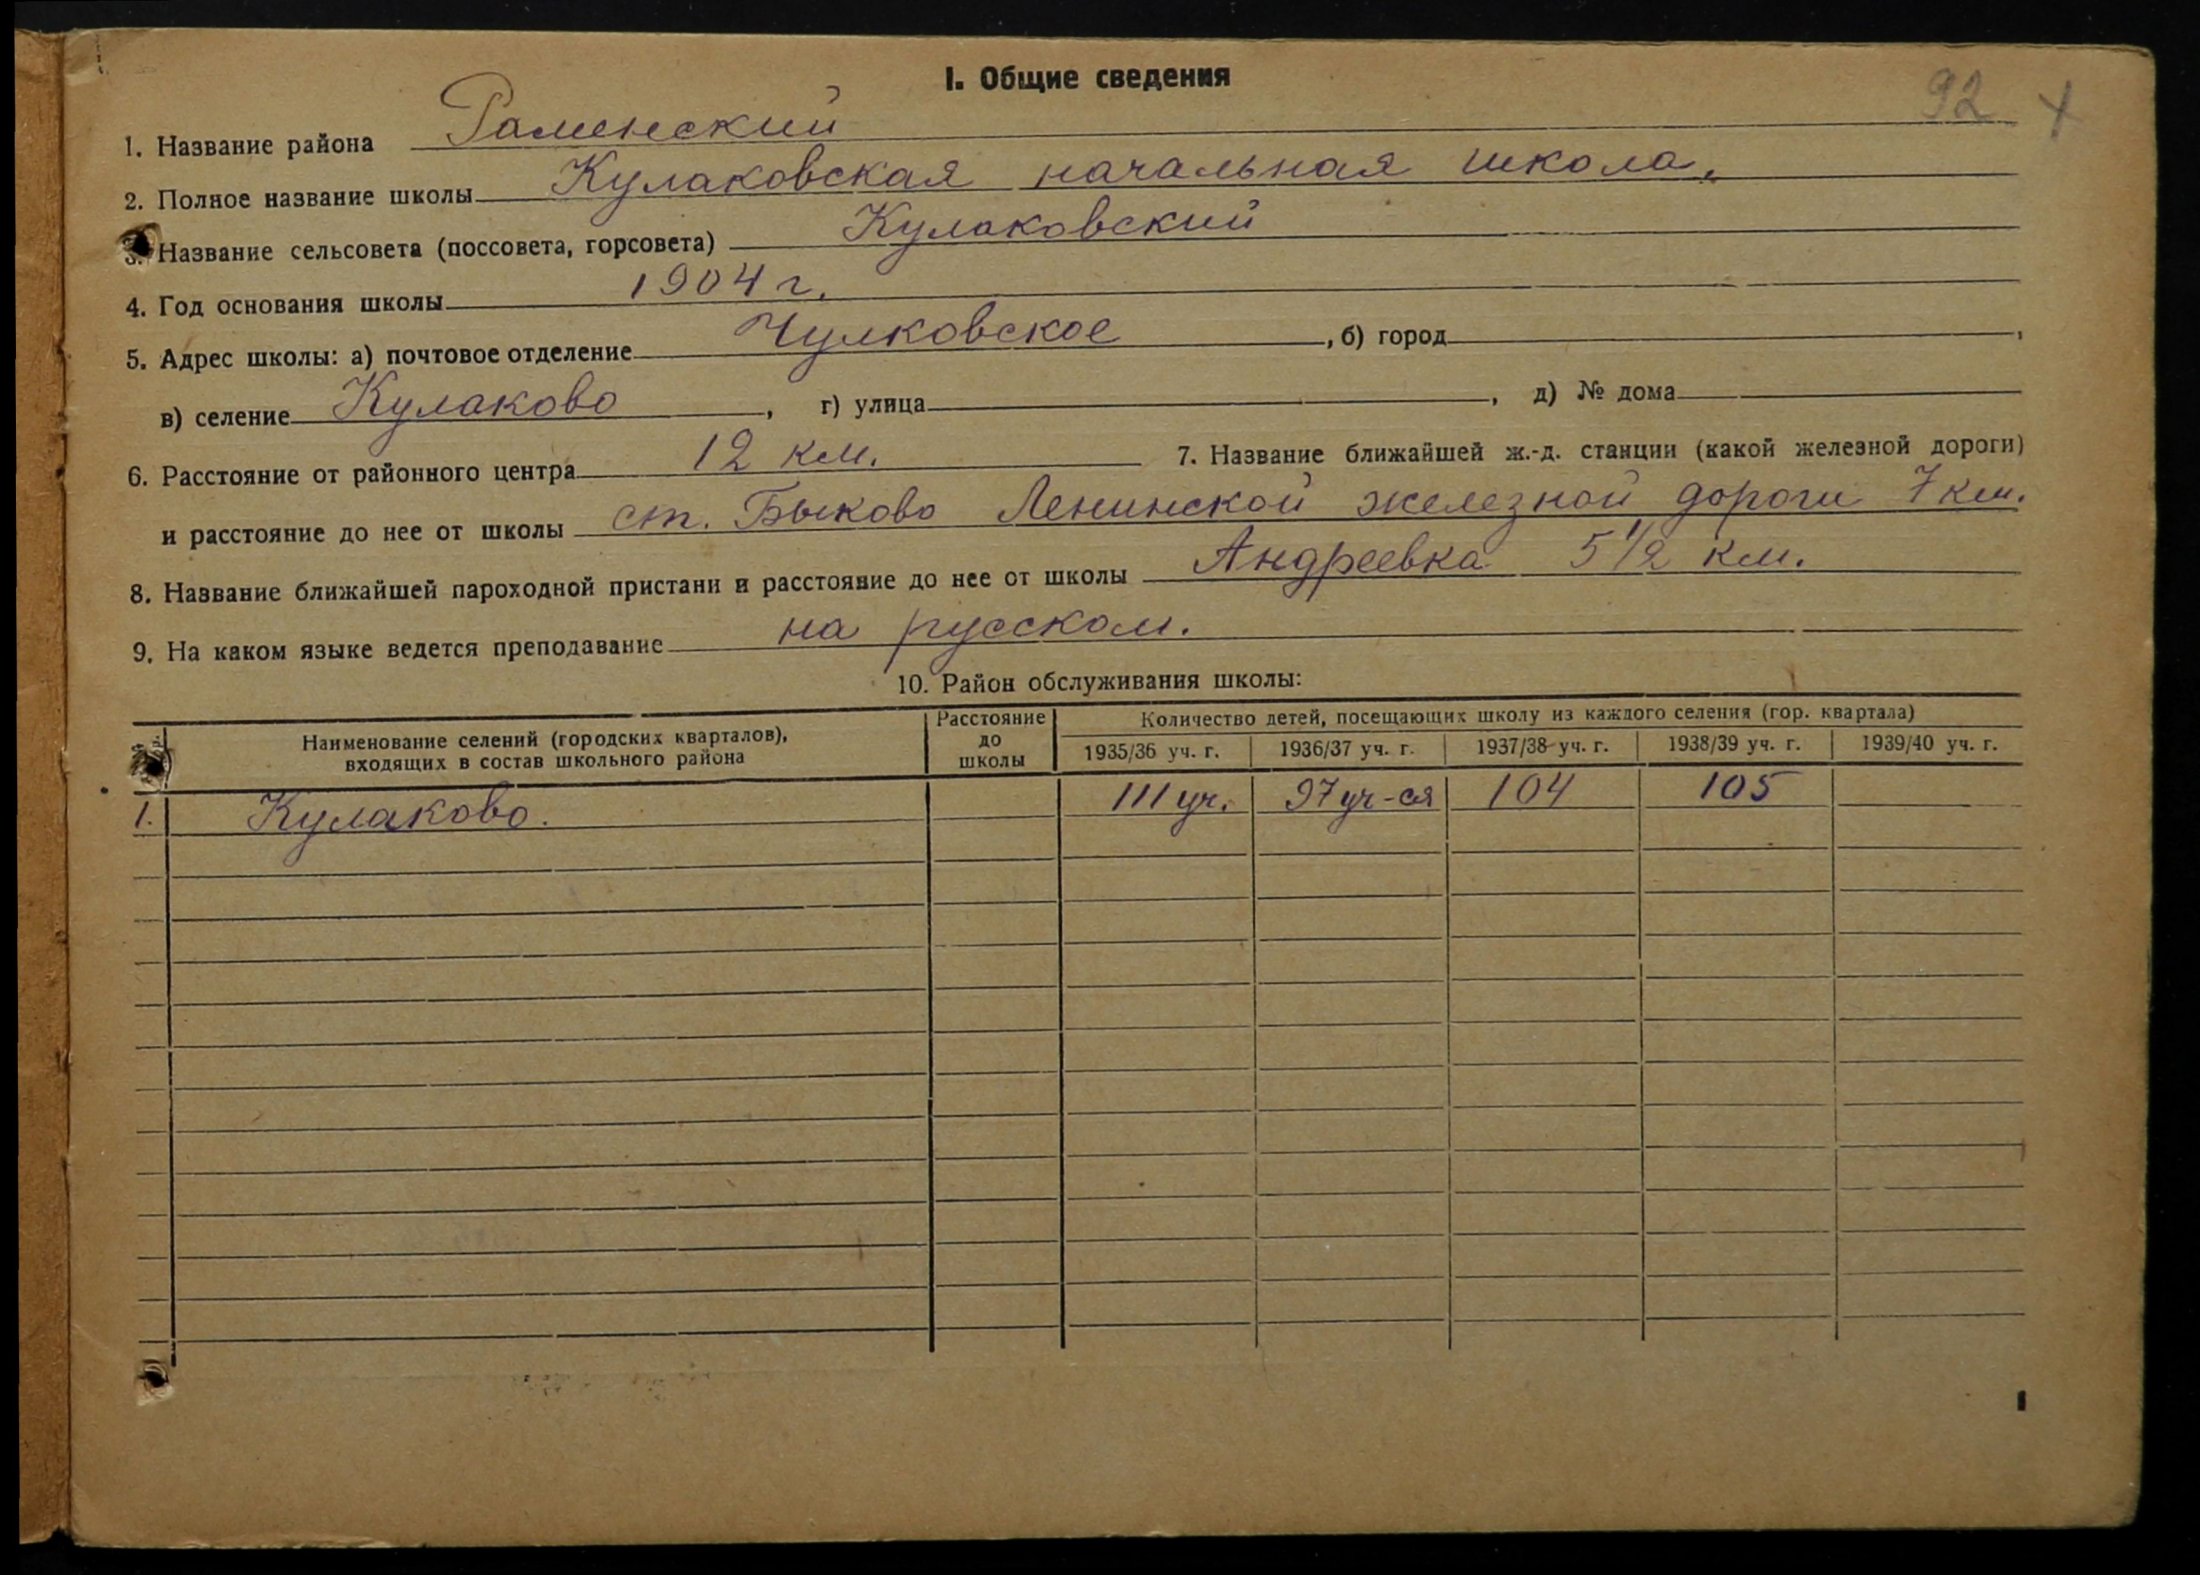 I. Общие сведения
92
1. Название района Раменский
2. Полное название школы Кулаковская начальная школа.
3. Название сельсовета (поссовета, горсовета) Кулаковский
4. Год основания школы 1904 г.
5. Адрес школы: а) почтовое отделение Чулковское, б) город ,
в) селение Кулаково , г) улица , д) № дома
6. Расстояние от районного центра 12 км. 7. Название ближайшей ж.-д. станции (какой железной дороги)
и расстояние до нее от школы ст. Быково Ленинской железной дороги 7 км.
8. Название ближайшей пароходной пристани и расстояние до нее от школы Андреевка 5 1/2 км.
9. На каком языке ведется преподавание на русском.
10. Район обслуживания школы:
Наименование селений (городских кварталов), входящих в состав школьного района
Расстояние до школы
Количество детей, посещающих школу из каждого селения (гор. квартала)
1935/36 уч. г. 1936/37 уч. г. 1937/38 уч. г. 1938/39 уч. г. 1939/40 уч. г.
1. Кулаково. 111 уч. 97 уч-ся 104 105